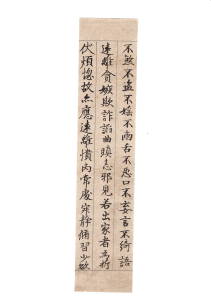 不殺不盜不婬不兩舌不惡口不妄言不綺語
遠離貪嫉欺詐諂曲瞋恚邪見若出家者為折
伏煩惱故亦應遠離憒丙常處寂靜脩習少欲